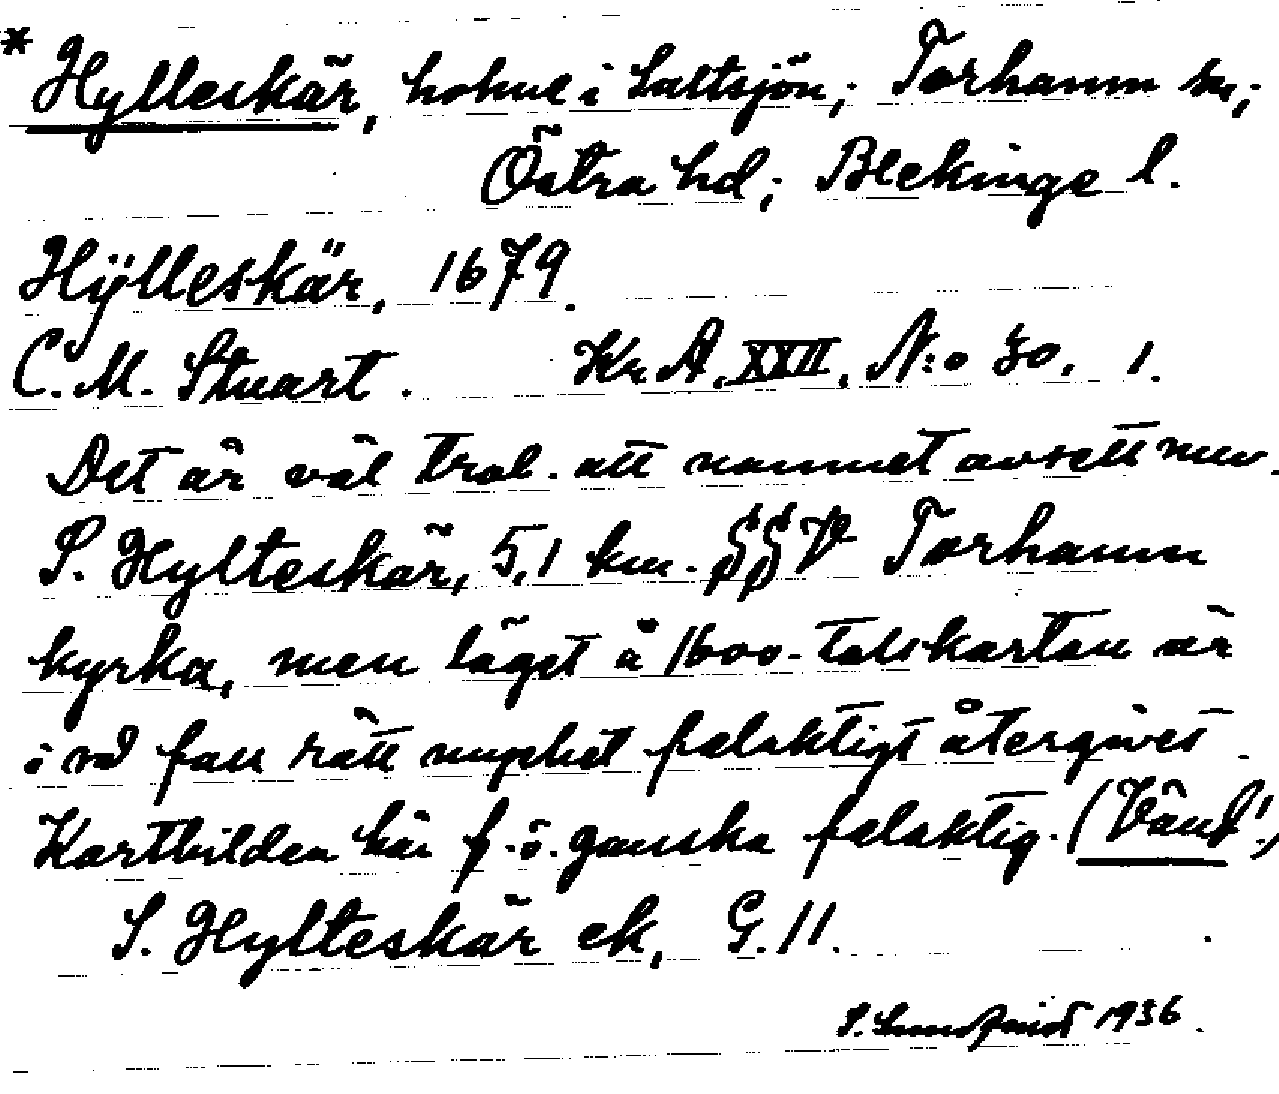 * Hylleskär, holme i Saltsjön; Torhamn sn;
Östra hd; Blekinge l.
Hÿlleskär, 1679.
C. M. Stuart. Kr. A. XXII. N:o 30. 1.
Det är väl trol. att namnet avsett nuv.
S. Hylteskär, 5,1 km. SSV Torhamn
kyrka, men läget å 1600-talskartan är
i så fall rätt mycket felaktigt återgivet.
Kartbilden här f. ö. ganska felaktig. (Vänd!)
S. Hylteskär ek, G. 11.
1936.